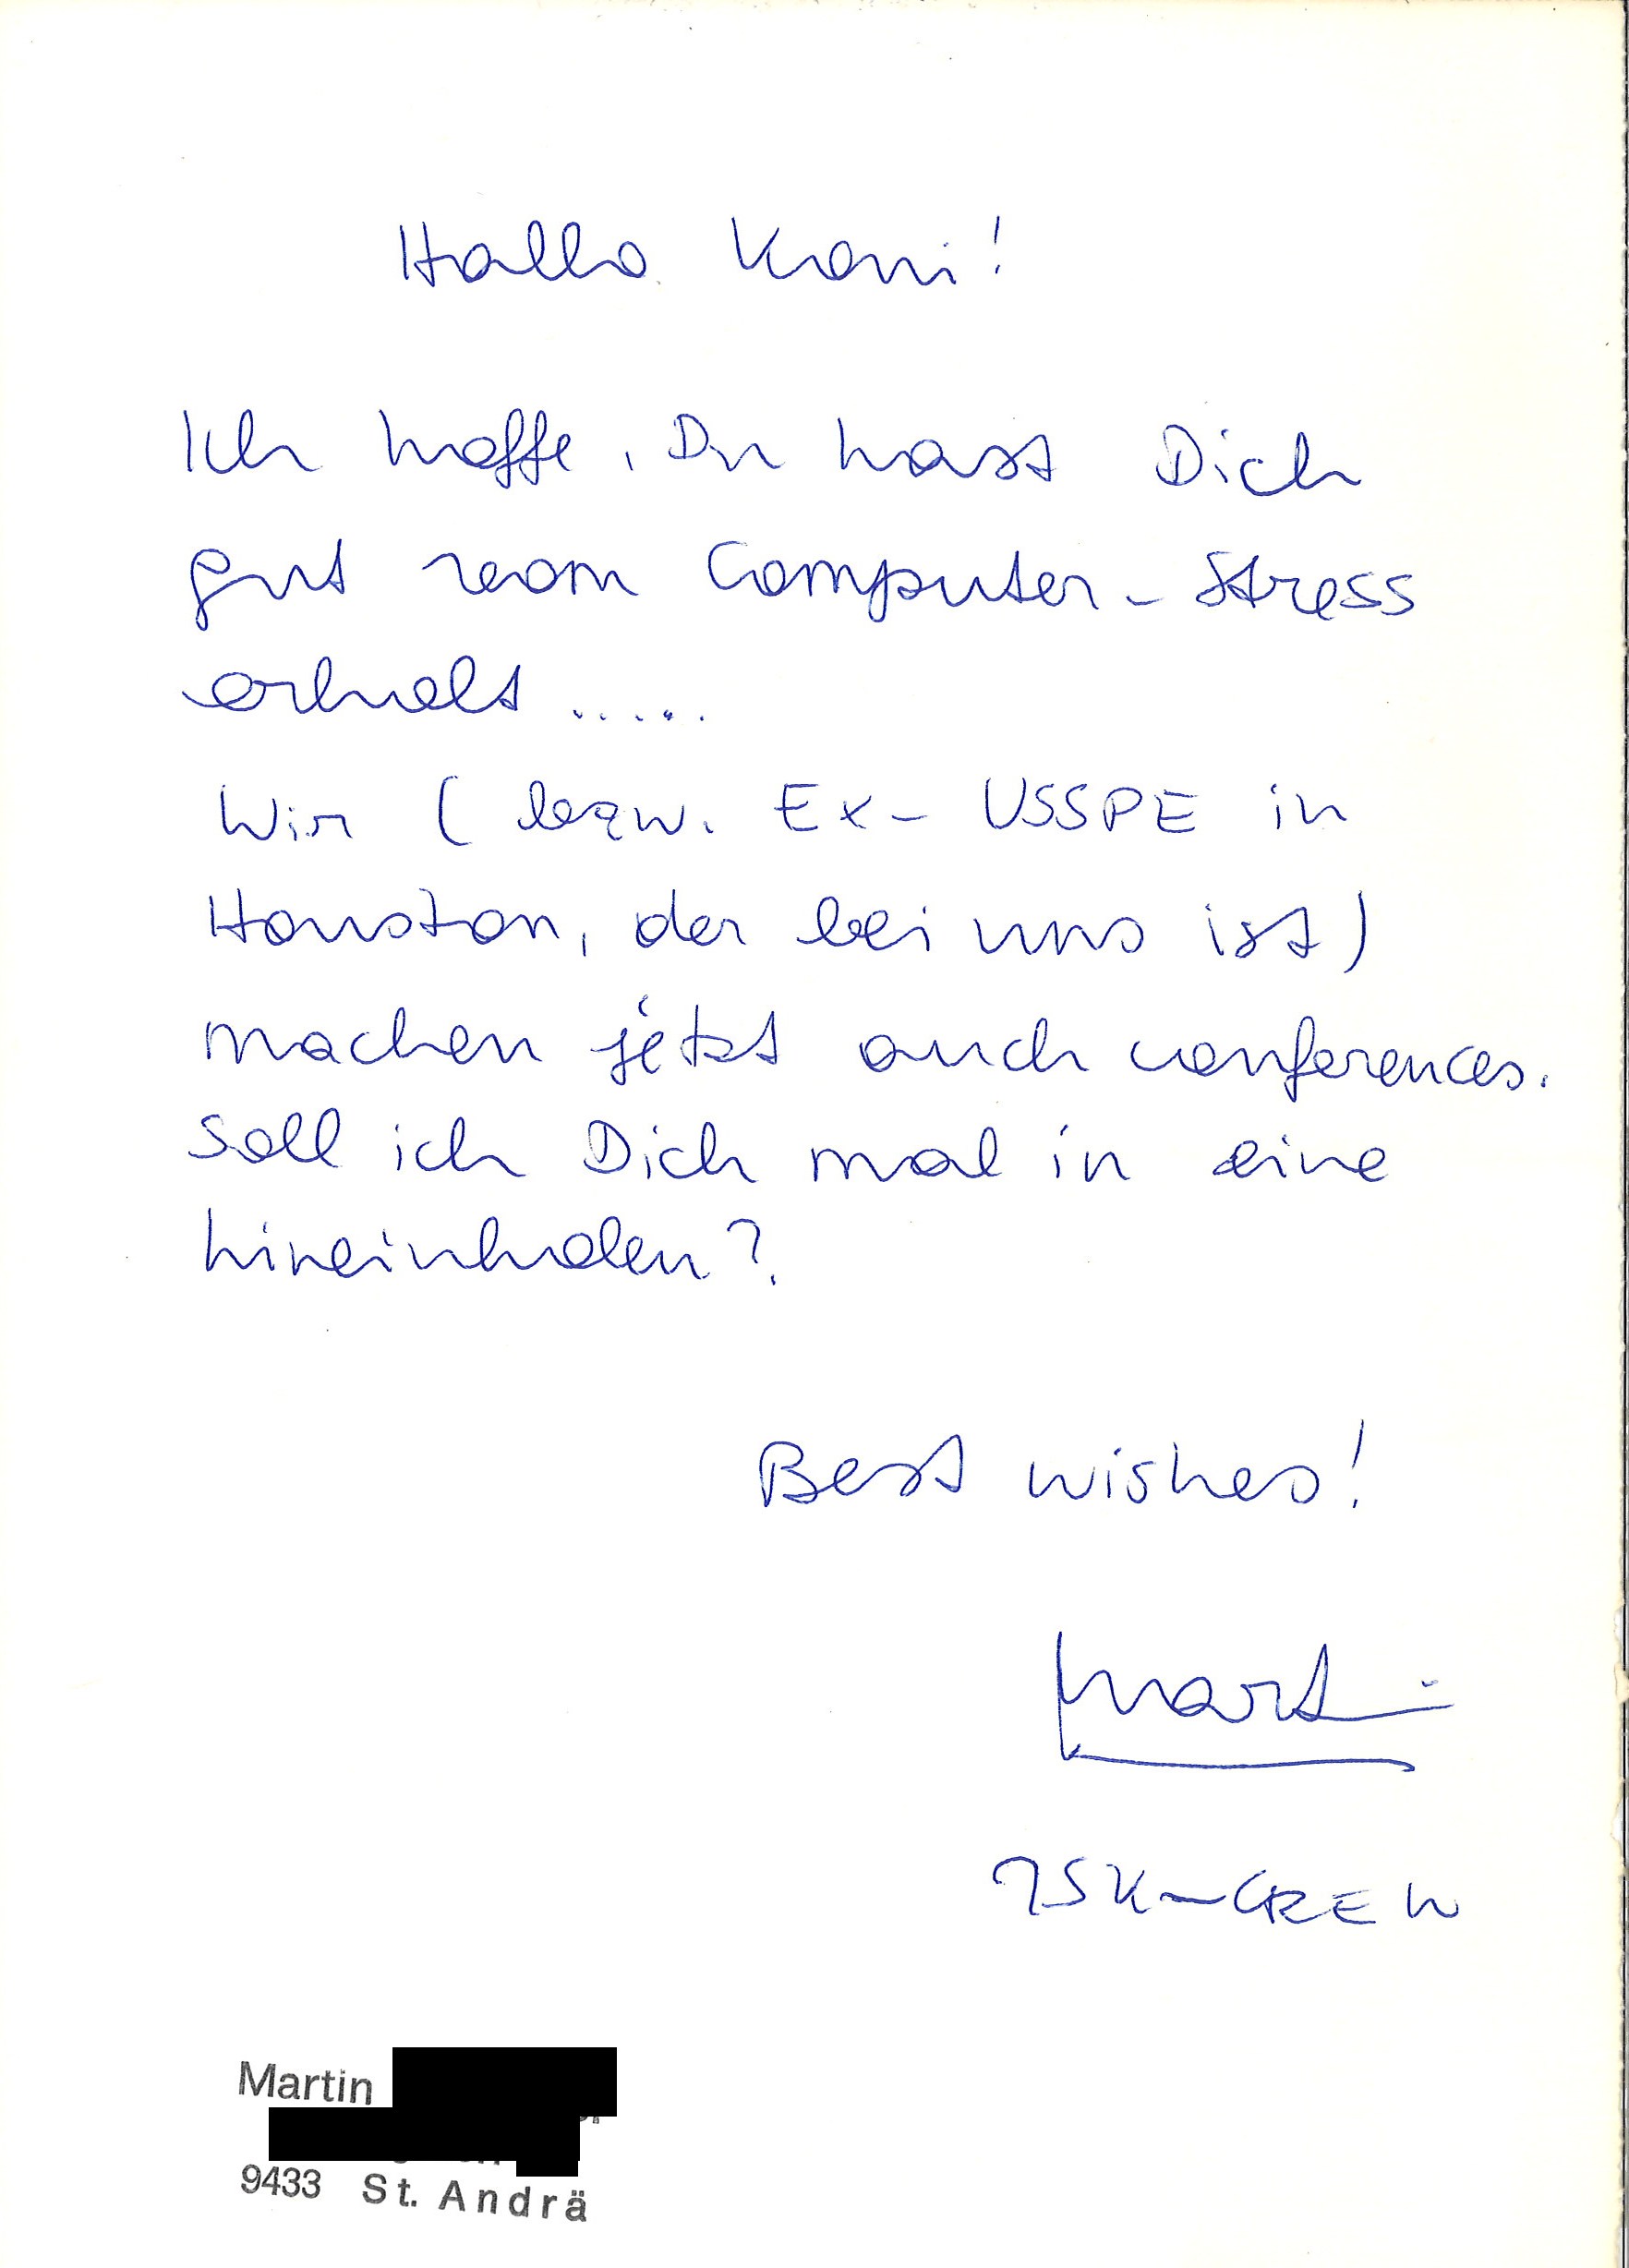 Hallo Kroni!
Ich hoffe, Du hast Dich
gut vom Computer-Stress
erholt.....
Wir (bezw. Ex-USSPE in
Houston, der bei uns ist)
machen jetzt auch conferences.
Soll ich Dich mal in eine
hineinholen?
Best wishes!
Martin
JSK-CREW
Martin
9433 St. Andrä